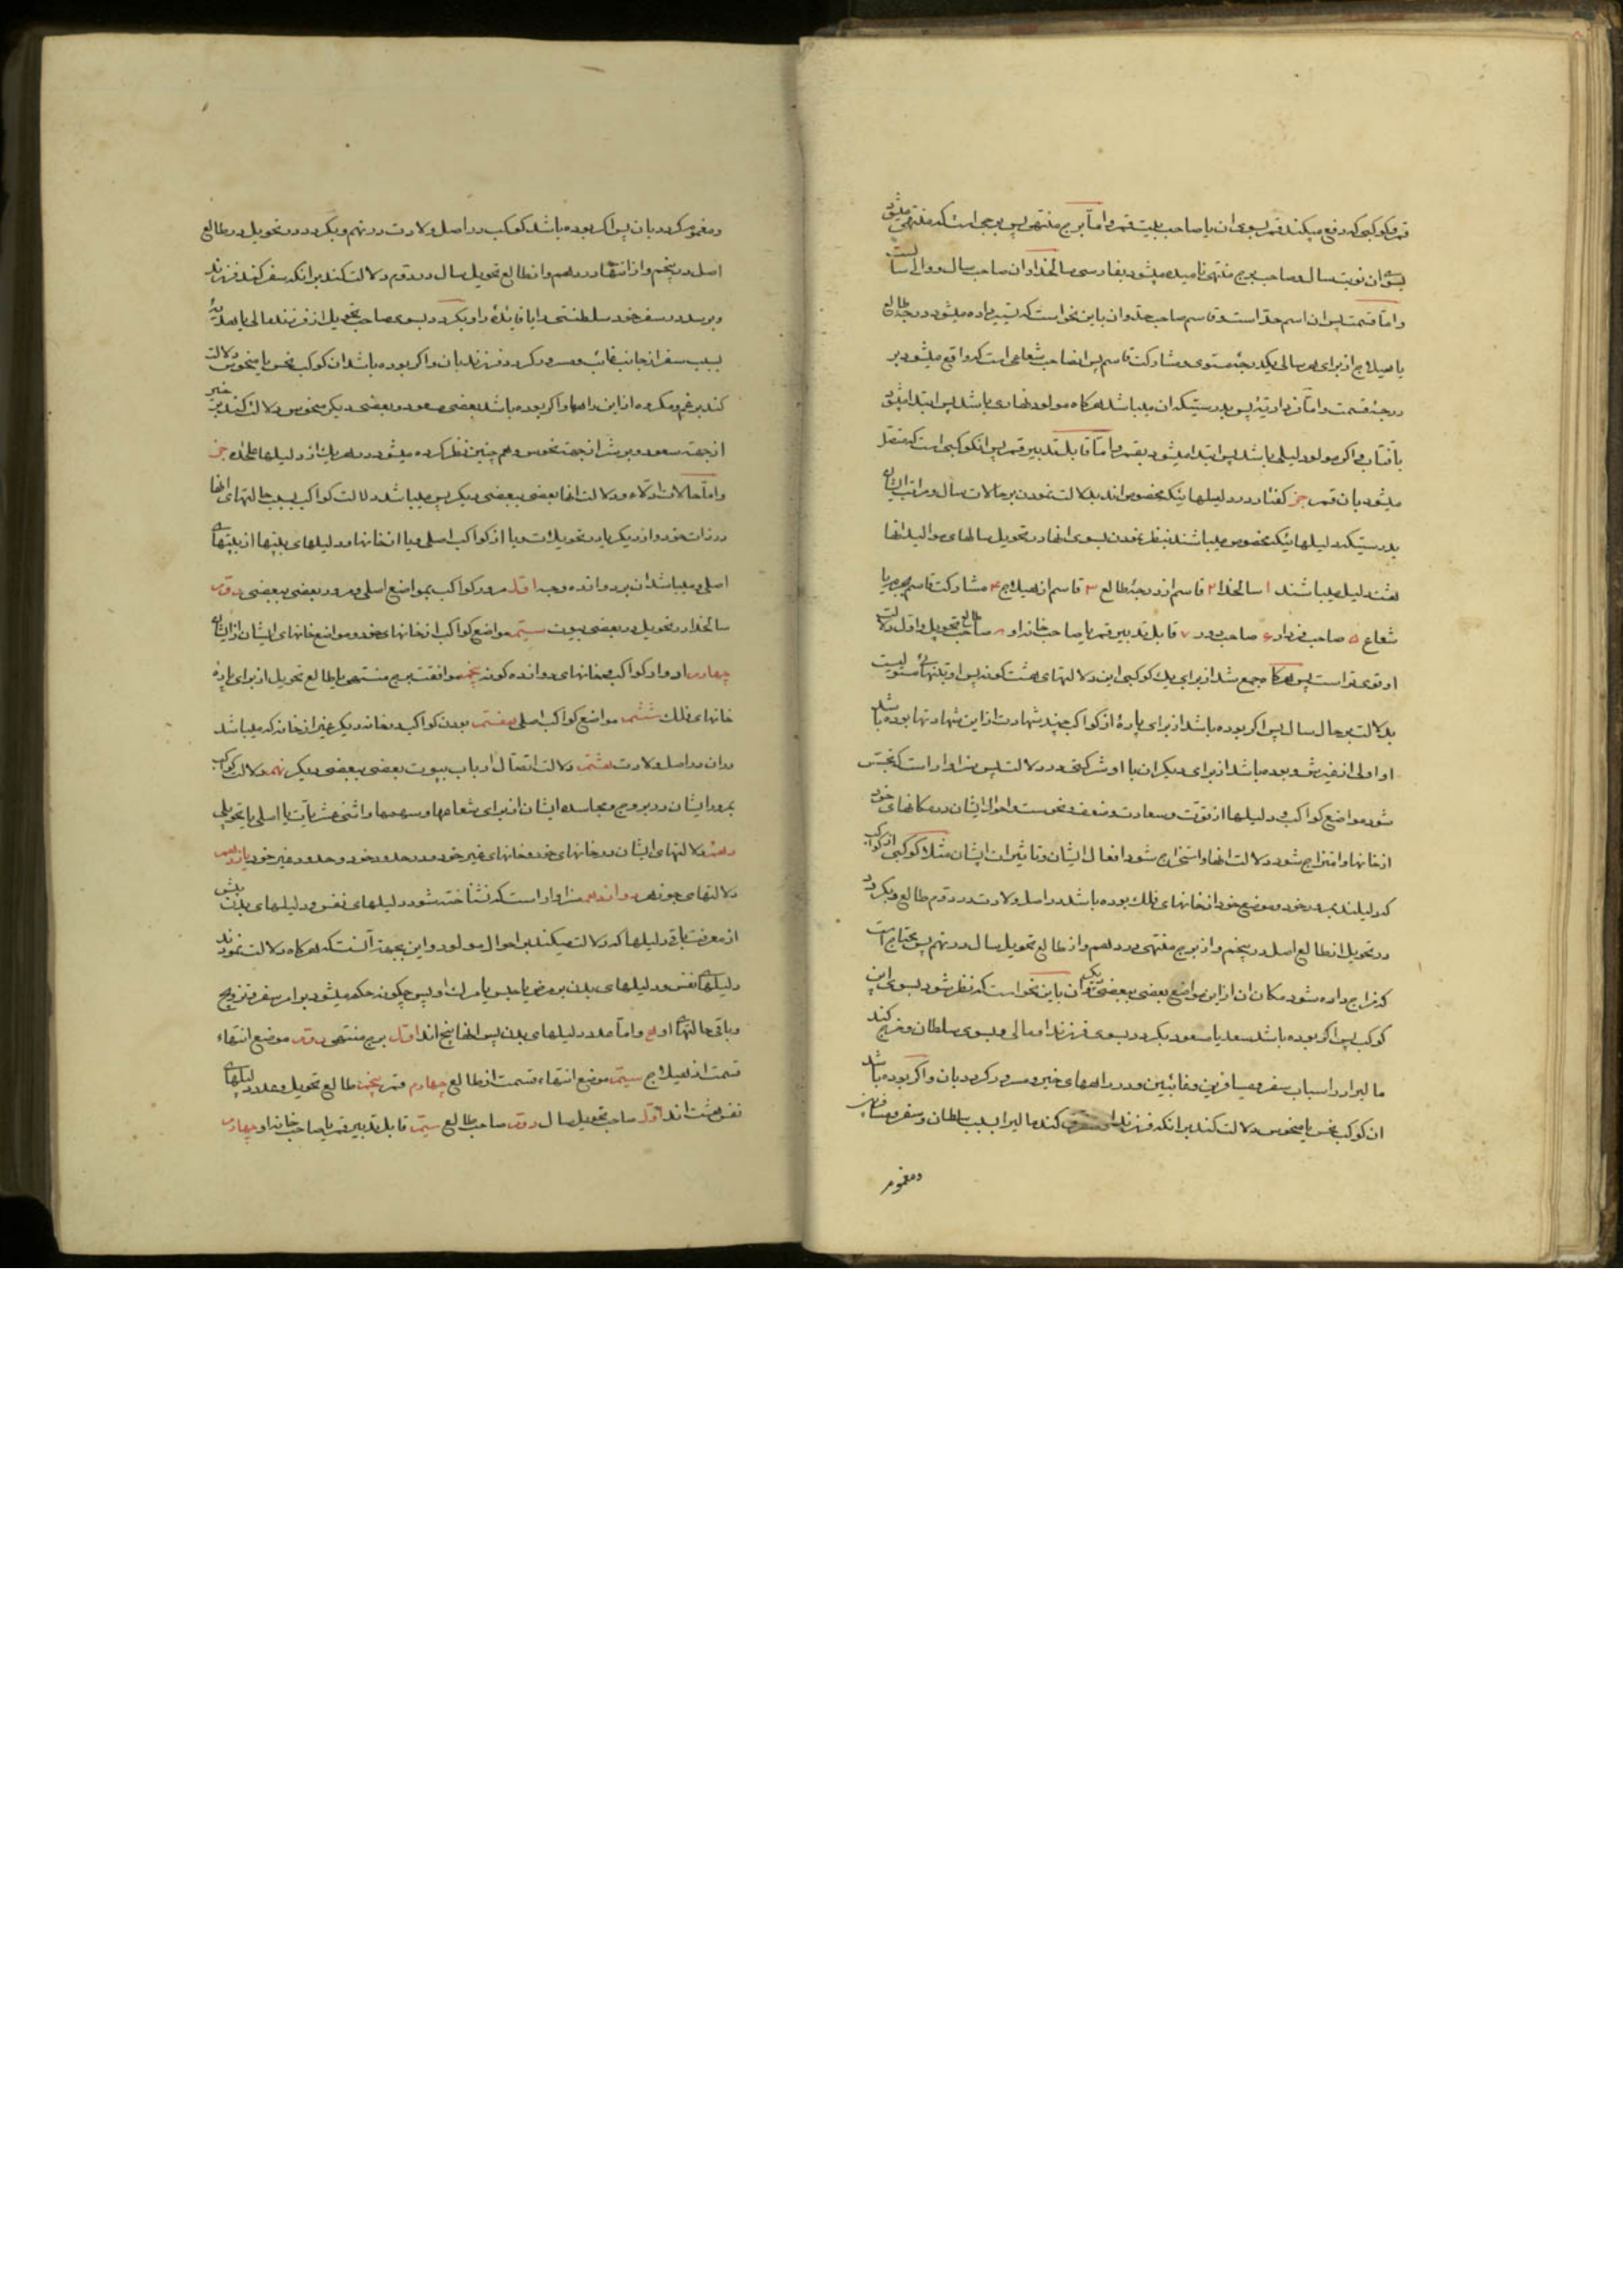 قمر و کوکبی که دفع میکند قمر بسوی ان یا صاحب بیت قمر و اما برج منتهی پس برجی است که منتهی میشود
بسوی ان نوبت سال و صاحب برج منتهی نامیده میشود بفارسی سالخداو ان صاحب سال و والی سال است
و اما قسمت پس ان اسم حد است و قاسم صاحب حد و ان باین نحو است که تسییر داده میشود درجۀ طالع
یا هیلاج از برای هر سالی یکدرجۀ مستوی و مشارکت قاسم پس انصاحب شعاعی است که واقع میشود بر
درجۀ قسمت و اما فرداریّه پس بدرستیکه ان میباشد هرکاه مولود نهاری باشد پس ابتدا میشود
بافتاب و اگر مولود لیلی باشد پس ابتدا میشود بقمر و امّا قابل تدبیر قمر پس انکوکبی است که متصل
میشود بان قمر جز کفتار در دلیلهائیکه مخصوص اند بدلالت نمودن بر حالات سال و مراتب ایشان
بدرستیکه دلیلهائیکه مخصوص میباشند بنظر نمودن بسوی انها در تحویل سالهای موالید انها
هشت دلیل میباشند ۱ سالخدا ۲ قاسم از درجۀ طالع ۳ قاسم از هیلاج ۴ مشارکت قاسم بجرم یا
شعاع ۵ صاحب فردار ۶ صاحب دور ۷ قابل تدبیر قمر یا صاحب خانه او ۸ صاحب طالع تحویل و اول دلالت
او قوی تر است پس هرکاه جمع شد از برای یک کوکبی این دلالتهای هشت کونه پس او بتنهائی مستولیست
بدلالت بر حال سال پس اکر بوده باشد از برای پارۀ از کواکب چند شهادت از این شهادتها بوده باشد
او اولی از غیرش و بوده باشد از برای دیکران با او شرکتی در دلالت پس سزاوار است که تجسّس
شود مواضع کواکب و دلیلها از قوّت و سعادت و ضعف و نحوست و احوال ایشان در مکانهای خود
از خانها و امتزاج شود دلالت انها و استخراج شود افعال ایشان و تاثیرات ایشان مثلا کوکبی از کواکب
که دلیلند بمرور خود و موضع خود از خانهای فلک بوده باشد در اصل ولادت در دوم طالع و بکردد
در تحویل از طالع اصل در پنجم و از برج منتهی در دهم و از طالع تحویل سال در نهم پس محتاج است
که مزاج داده شود مکان ان از این مواضع بعضی ببعضی دیکر و ان باین نحو است که نظر شود بسوی این
کوکب پس اکر بوده باشد سعد یا مسعود بکردد بسوی فرزند او مالی و بسوی سلطان و خرج کند
مالیرا در اسباب سفر و مسافرین و غائبین و در راههای خیر و مسرور کردد بان و اکر بوده باشد
ان کوکب نحس یا منحوس دلالت کند بر انکه فرزند او کند مالیرا بسبب سلطان و سفر و مسافران
و مغموم
و مغموم کردد بان پس اکر بوده باشد کوکب در اصل ولادت در نهم و بکردد در تحویل در طالع
اصل در پنجم و از انتها در دهم و از طالع تحویل سال در دوم دلالت کند بر انکه سفر کند فرزند
و برسد در سفر خود سلطنتی را یا فائدۀ را و بکردد بسوی صاحب تحویل از فرزند مالی یا هدیۀ
بسبب سفر از جانب غائب و مسرور کردد فرزند بان و اکر بوده باشد ان کوکب نحس یا منحوس دلالت
کند بر غم و مکروه از این راهها و اکر بوده باشد بعضی مسعود و بعضی دیکر منحوس دلالت کند بر خیر
از جهة سعود و بر شر از جهة نحوس و هم چنین نظر کرده میشود در هر یک از دلیلها علیحده جز
و امّا حالات ادلّاء و دلالت انها بعضی ببعضی دیکر پس میباشد دلالت کواکب بسبب حالتهای انها
در ذات خود و از دیکر یا در تحویلات و یا از کواکب اصلی و یا از خانها و دلیلهای بیتها از بیتهای
اصلی و میباشد ان بر دوازده وجه اوّل مرور کواکب بمواضع اصلی و مرور بعضی ببعضی دوّم
سالخدا در تحویل در بعضی بیوت سیّم مواضع کواکب از خانهای خود و مواضع خانهای ایشان از ایشان
چهارم ادوار کواکب بخانهای دوازده کونه پنجم موافقت برج منتهی با طالع تحویل از برای پارۀ
خانهای فلک ششم مواضع کواکب اصلی هفتم بودن کواکب در خانه دیکر غیر از خانه که میباشد
در ان در اصل ولادت هشتم دلالت اتصال ارباب بیوت بعضی ببعضی دیکر نهم دلالت کواکب
بمرور ایشان در بروج و مجاسده ایشان از برای شعاعها و سهمها و اثنی عشریّات یا اصلی یا تحویلی
دهم دلالتهای ایشان در خانهای خود و خانهای غیر خود و در حدود خود و حدود غیر خود یازدهم
دلالتهای جوزهر دوازدهم سزاوار است که شناخته شود دلیلهای نفس و دلیلهای بدن پیش
از معرفت باقی دلیلها که دلالت میکنند بر احوال مولود و این بجهة آنست که هرکاه دلالت نمودند
دلیلهای نفس و دلیلهای بدن بر مرض یا حبس یا مرک او پس چکونه حکم میشود بر امر سفر و تزویج
و باقی حالتهای او و اما عدد دلیلهای بدن پس انها پنج اند اول برج منتهی دوّم موضع انتهاء
قسمت از هیلاج سیّم موضع انتهاء قسمت از طالع چهارم قمر پنجم طالع تحویل و عدد دلیلهای
نفس هشت اند اوّل صاحب تحویل سال دوم صاحب طالع سیّم قابل تدبیر قمر یا صاحب خانه او چهارم